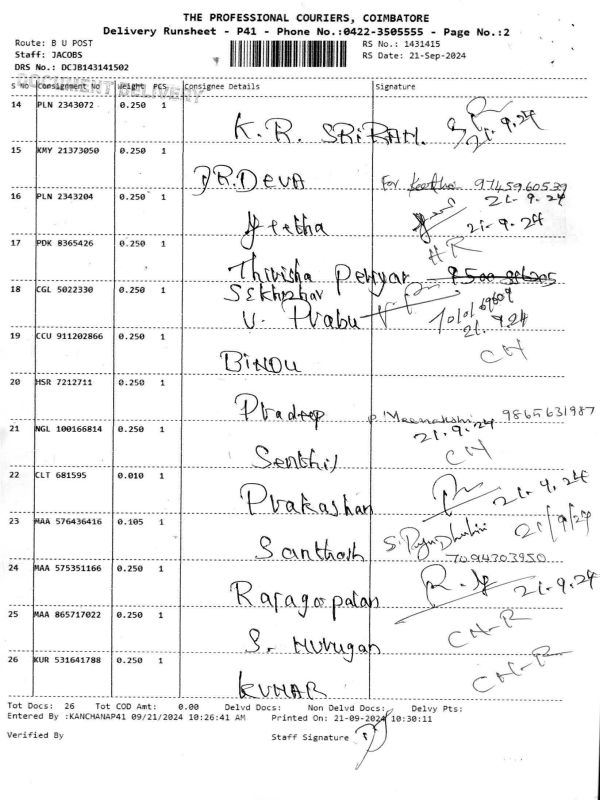 THE PROFESSIONAL COURIERS, COIMBATORE
Delivery Runsheet - P41 - Phone No.:0422-3505555 - Page No.:2
Route: B U POST RS No.: 1431415
Staff: JACOBS RS Date: 21-Sep-2024
DRS No.: DCJB143141502
DOCUMENT DELIVERY
S No Consignment No Weight PCS Consignee Details Signature
14 PLN 2343072 0.250 1
K. R. SRIRAM. 21.9.24
15 KMY 21373050 0.250 1
DR. DEVA For 9745960539
21-9-24
16 PLN 2343204 0.250 1
Geetha 21-9-24
17 PDK 8365426 0.250 1 HR
Thivisha Periyar
18 CGL 5022330 0.250 1 Sekhizhar
V. Prabu 21.9.24
19 CCU 911202866 0.250 1 CN
BINDU
20 HSR 7212711 0.250 1
Pradeep P. Meenakshi 9865631987
21 NGL 100166814 0.250 1 21.9.24
Senthil CN
22 CLT 681595 0.010 1
Prakashan 21.9.24
23 MAA 576436416 0.105 1 21/9/24
Santhosh 7094303950
24 MAA 575351166 0.250 1
Rajagopalan 21-9.24
25 MAA 865717022 0.250 1
S. Murugan CN-R
26 KUR 531641788 0.250 1
KUMAR CN-R
Tot Docs: 26 Tot COD Amt: 0.00 Delvd Docs: Non Delvd Docs: Delvy Pts:
Entered By :KANCHANAP41 09/21/2024 10:26:41 AM Printed On: 21-09-2024 10:30:11
Verified By Staff Signature